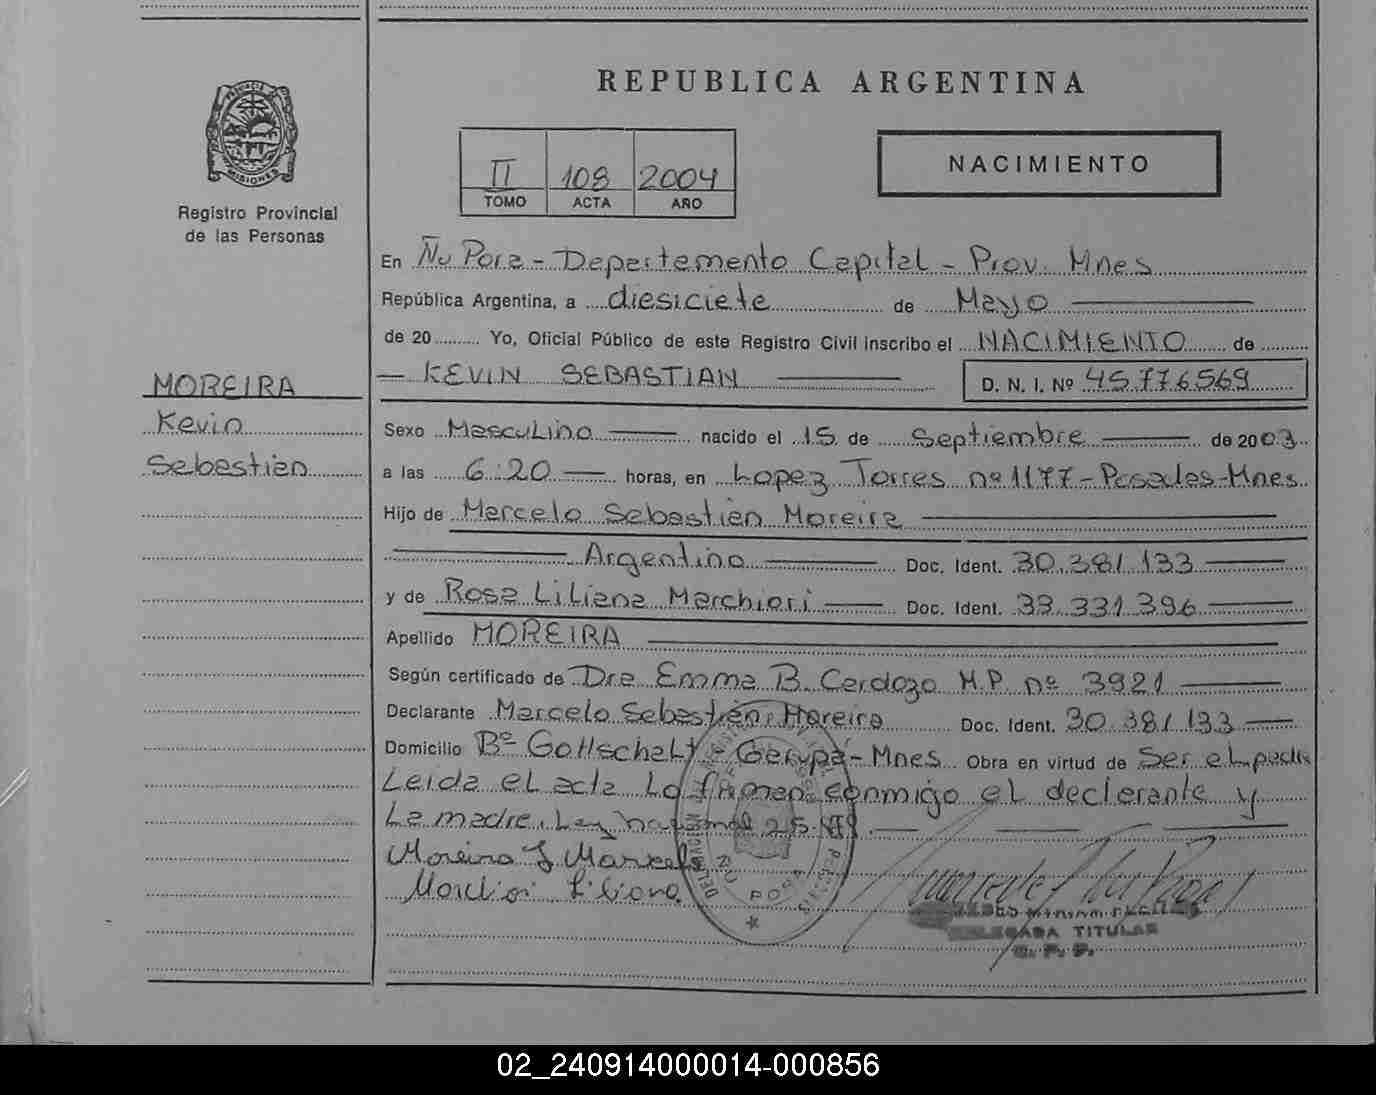 REPUBLICA ARGENTINA
PROVINCIA DE
MISIONES
Registro Provincial
de las Personas
II 108 2004
TOMO ACTA AÑO
NACIMIENTO
MOREIRA
Kevin
Sebastián
En Ñu Pora - Departamento Capital - Prov. Mnes
República Argentina, a diesiciete de Mayo
de 20 Yo, Oficial Público de este Registro Civil inscribo el NACIMIENTO de
KEVIN SEBASTIAN D. N. I. Nº 45776569
Sexo Masculino nacido el 15 de Septiembre de 2003
a las 6:20 horas, en Lopez Torres nº 1177 - Posadas - Mnes
Hijo de Marcelo Sebastián Moreira
Argentino Doc. Ident. 30.381.133
y de Rosa Liliana Marchiori Doc. Ident. 33.331.396
Apellido MOREIRA
Según certificado de Dra Emma B. Cardozo M.P. nº 3921
Declarante Marcelo Sebastián Moreira Doc. Ident. 30.381.133
Domicilio Bº Gottschalk - Garupá - Mnes Obra en virtud de Ser el padre
Leida el acta la firman conmigo el declarante y
La madre. Ley nacional 25.
Moreira S Marcelo
Marchiori Liliana
ÑU PORA
DELEGADA TITULAR
R. P. P.
02_240914000014-000856